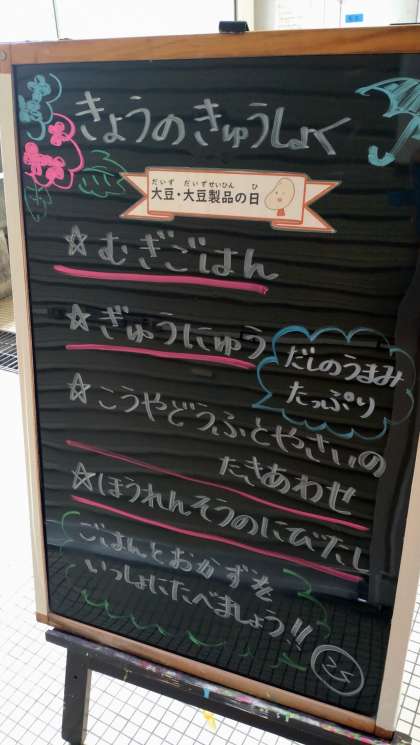 きょうのきゅうしょく
だいず だいずせいひん ひ
大豆・大豆製品の日
☆むぎごはん
☆ぎゅうにゅう
だしのうまみ
たっぷり
☆こうやどうふとやさいの
たきあわせ
☆ほうれんそうのにびたし
ごはんとおかずを
いっしょにたべましょう!!